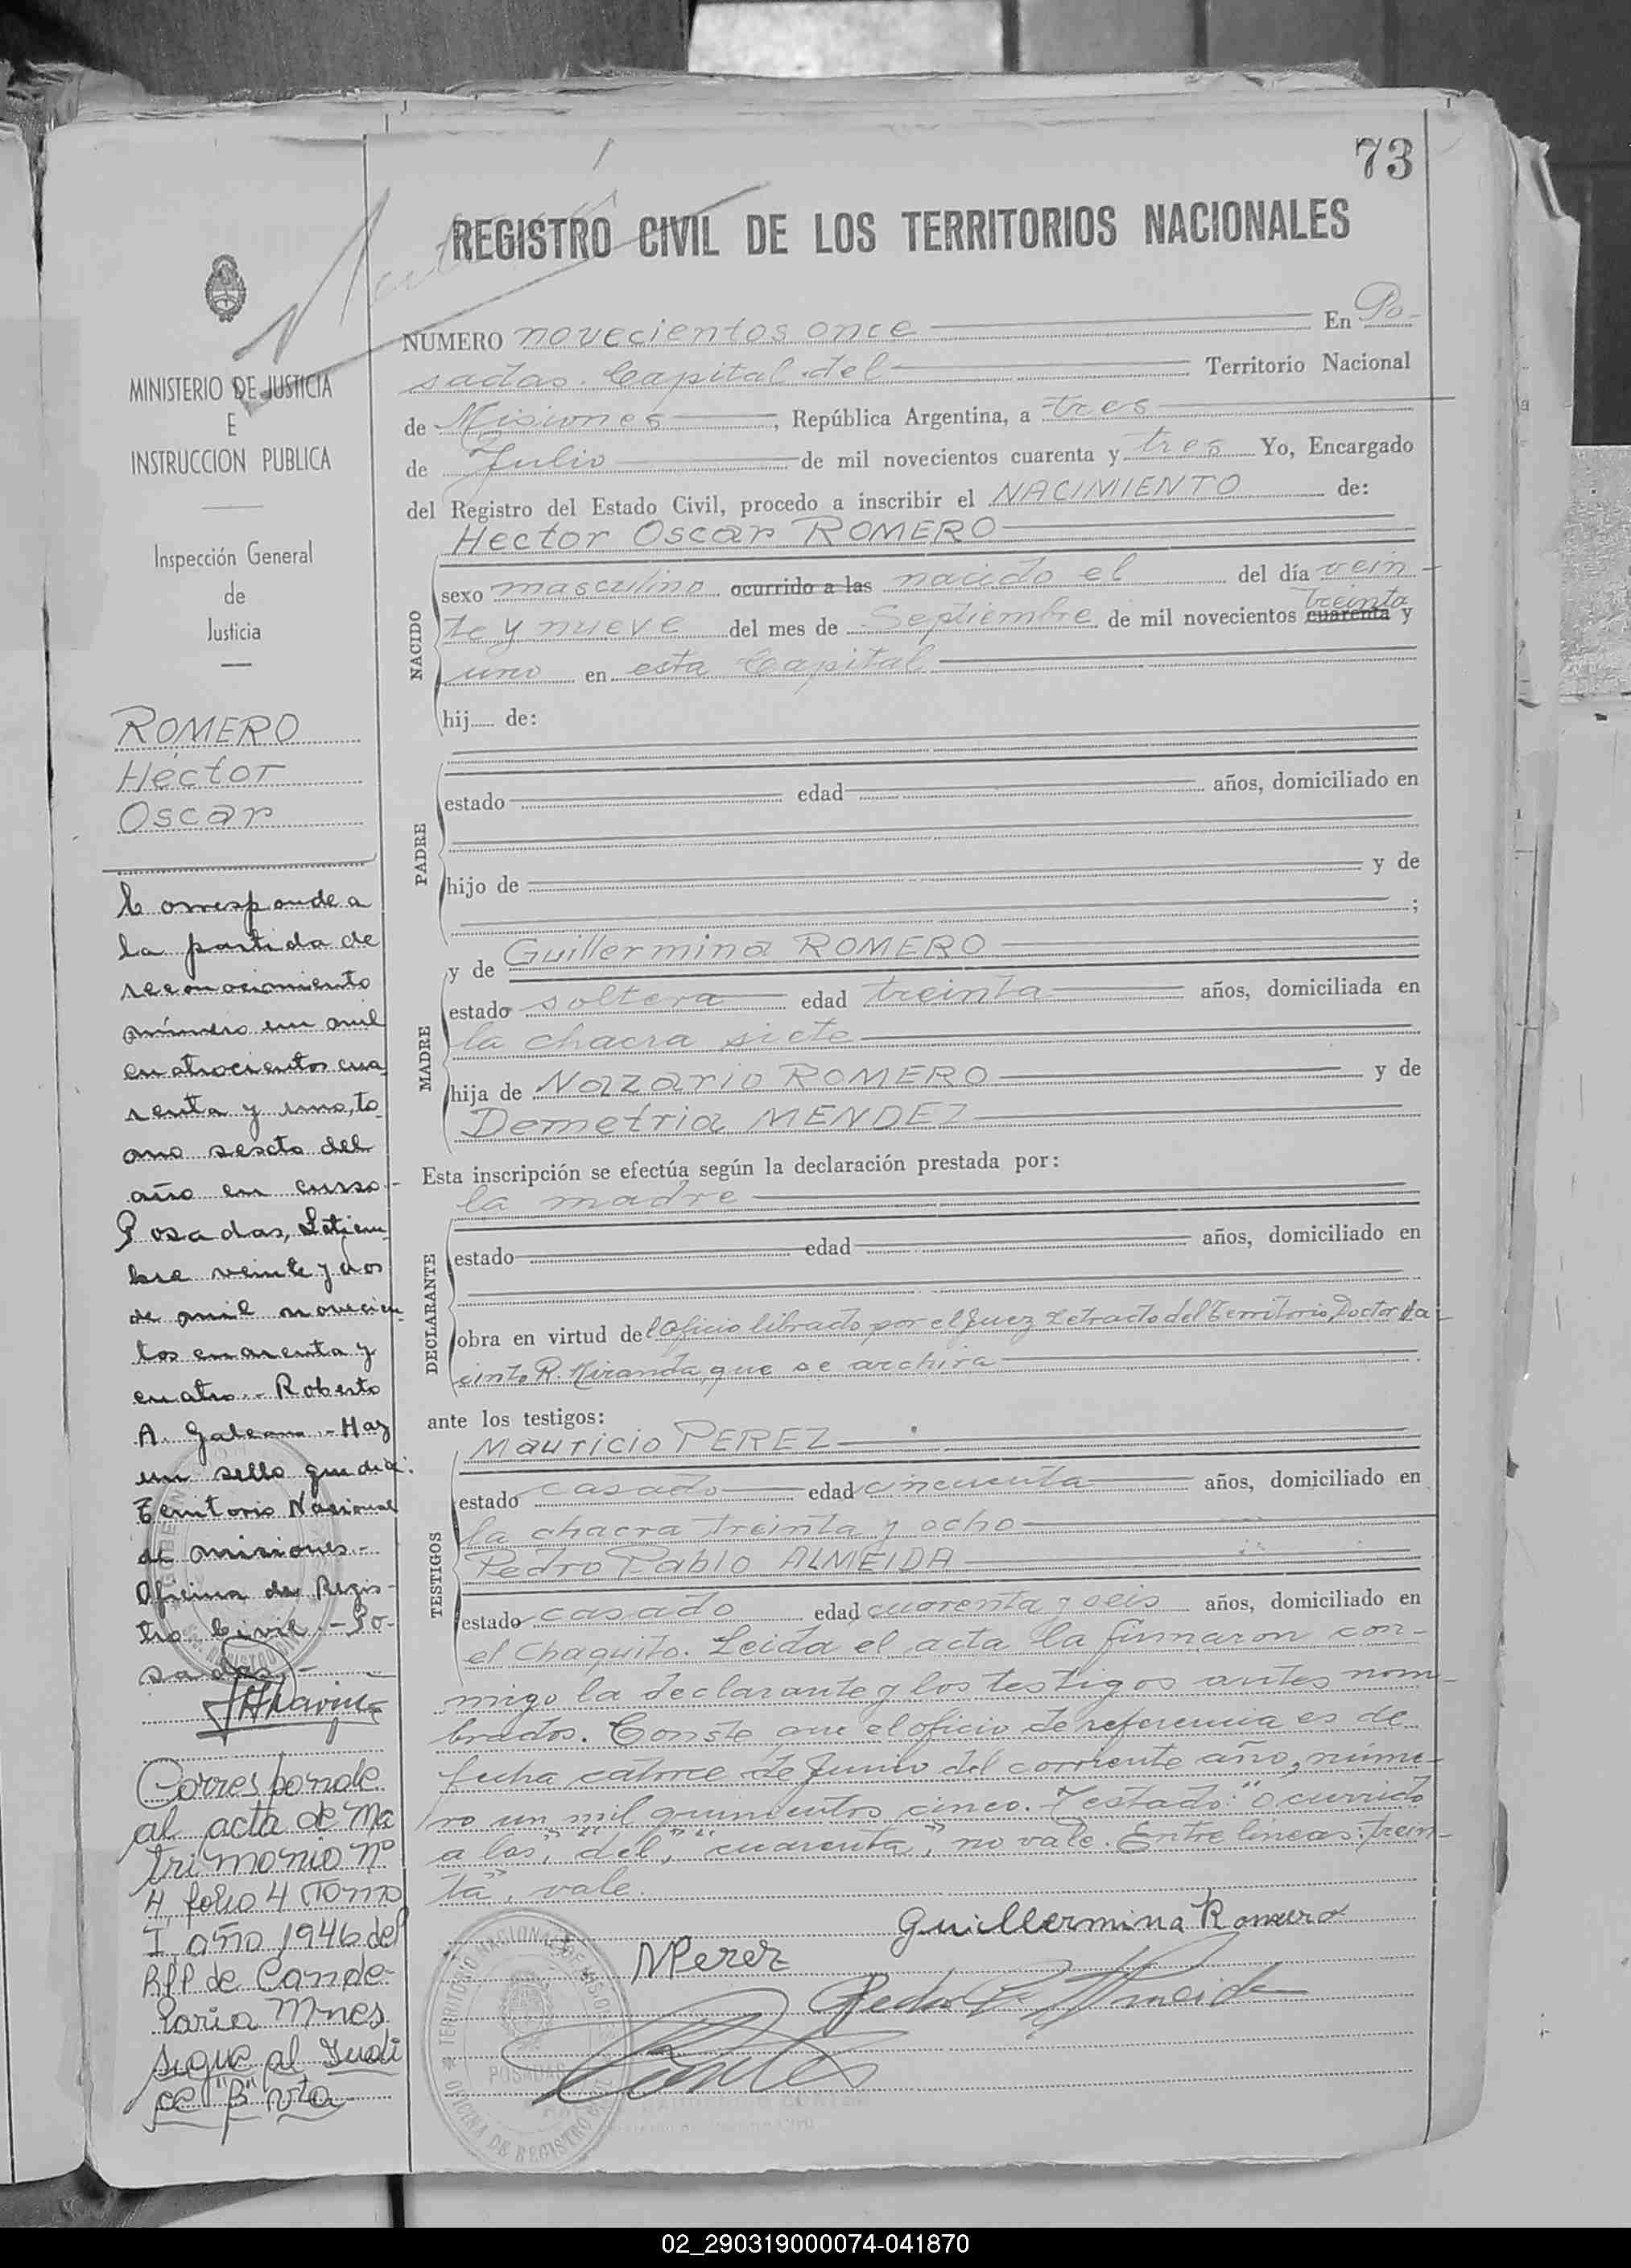 73
REGISTRO CIVIL DE LOS TERRITORIOS NACIONALES
NUMERO novecientos once En Po-
sadas. Capital del Territorio Nacional
de Misiones, República Argentina, a tres
de Julio de mil novecientos cuarenta y tres Yo, Encargado
del Registro del Estado Civil, procedo a inscribir el NACIMIENTO de:
Hector Oscar ROMERO
NACIDO
sexo masculino ocurrido a las nacido el del día vein-
te y nueve del mes de Septiembre de mil novecientos cuarenta treinta y
uno en esta Capital
hij de:
PADRE
estado edad años, domiciliado en
hijo de y de
;
MADRE
y de Guillermina ROMERO
estado soltera edad treinta años, domiciliada en
la chacra siete
hija de Nazario ROMERO y de
Demetria MENDEZ
Esta inscripción se efectúa según la declaración prestada por:
la madre
DECLARANTE
estado edad años, domiciliado en
obra en virtud del Oficio librado por el Juez Letrado del Territorio, Doctor Ja-
cinto R. Miranda, que se archiva
ante los testigos:
TESTIGOS
Mauricio PEREZ
estado casado edad cincuenta años, domiciliado en
la chacra treinta y ocho
Pedro Pablo ALMEIDA
estado casado edad cuarenta y seis años, domiciliado en
el Chaquito. Leida el acta la firmaron con-
migo la declarante y los testigos antes nom-
brados. Conste que el oficio de referencia es de
fecha catorce de Junio del corriente año, núme-
ro un mil quinientos cinco. Testado: "ocurrido
a las", "del", "cuarenta", no vale. Entre líneas: "trein-
ta", vale.
Guillermina Romero
MPerez
Pedro P. Almeida
TERRITORIO NACIONAL DE MISIONES
POSADAS
OFICINA DE REGISTRO CIVIL
MINISTERIO DE JUSTICIA
E
INSTRUCCION PUBLICA
Inspección General
de
Justicia
ROMERO
Héctor
Oscar
Corresponde a
la partida de
reconocimiento
número un mil
cuatrocientos cua
renta y uno, to-
mo sexto del
año en curso.-
Posadas, Setiem
bre veinte y dos
de mil novecien
tos cuarenta y
cuatro.- Roberto
A. Galeano.- Hay
un sello que dice:
Territorio Nacional
de misiones-
Oficina de Regis-
tro Civil.- Po-
sadas.-
Corresponde
al acta de Ma
trimonio nº
4 folio 4 Tomo
I, año 1946 del
RPP de Cande-
laria Mnes
sigue al Indi
ce "B" vta
02_290319000074-041870